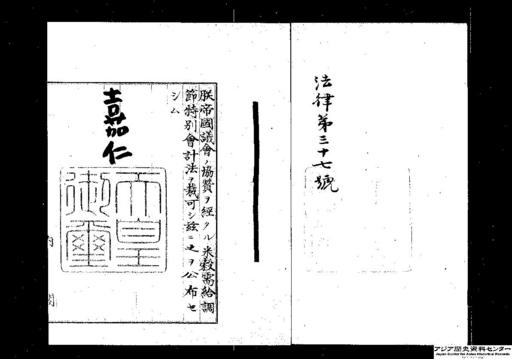 法律第三十七號
朕帝國議會ノ協賛ヲ經タル米穀需給調
節特別會計法ヲ裁可シ玆ニ之ヲ公布セ
シム
嘉仁
天皇御璽
内閣
アジア歴史資料センター
Japan Center for Asian Historical Records